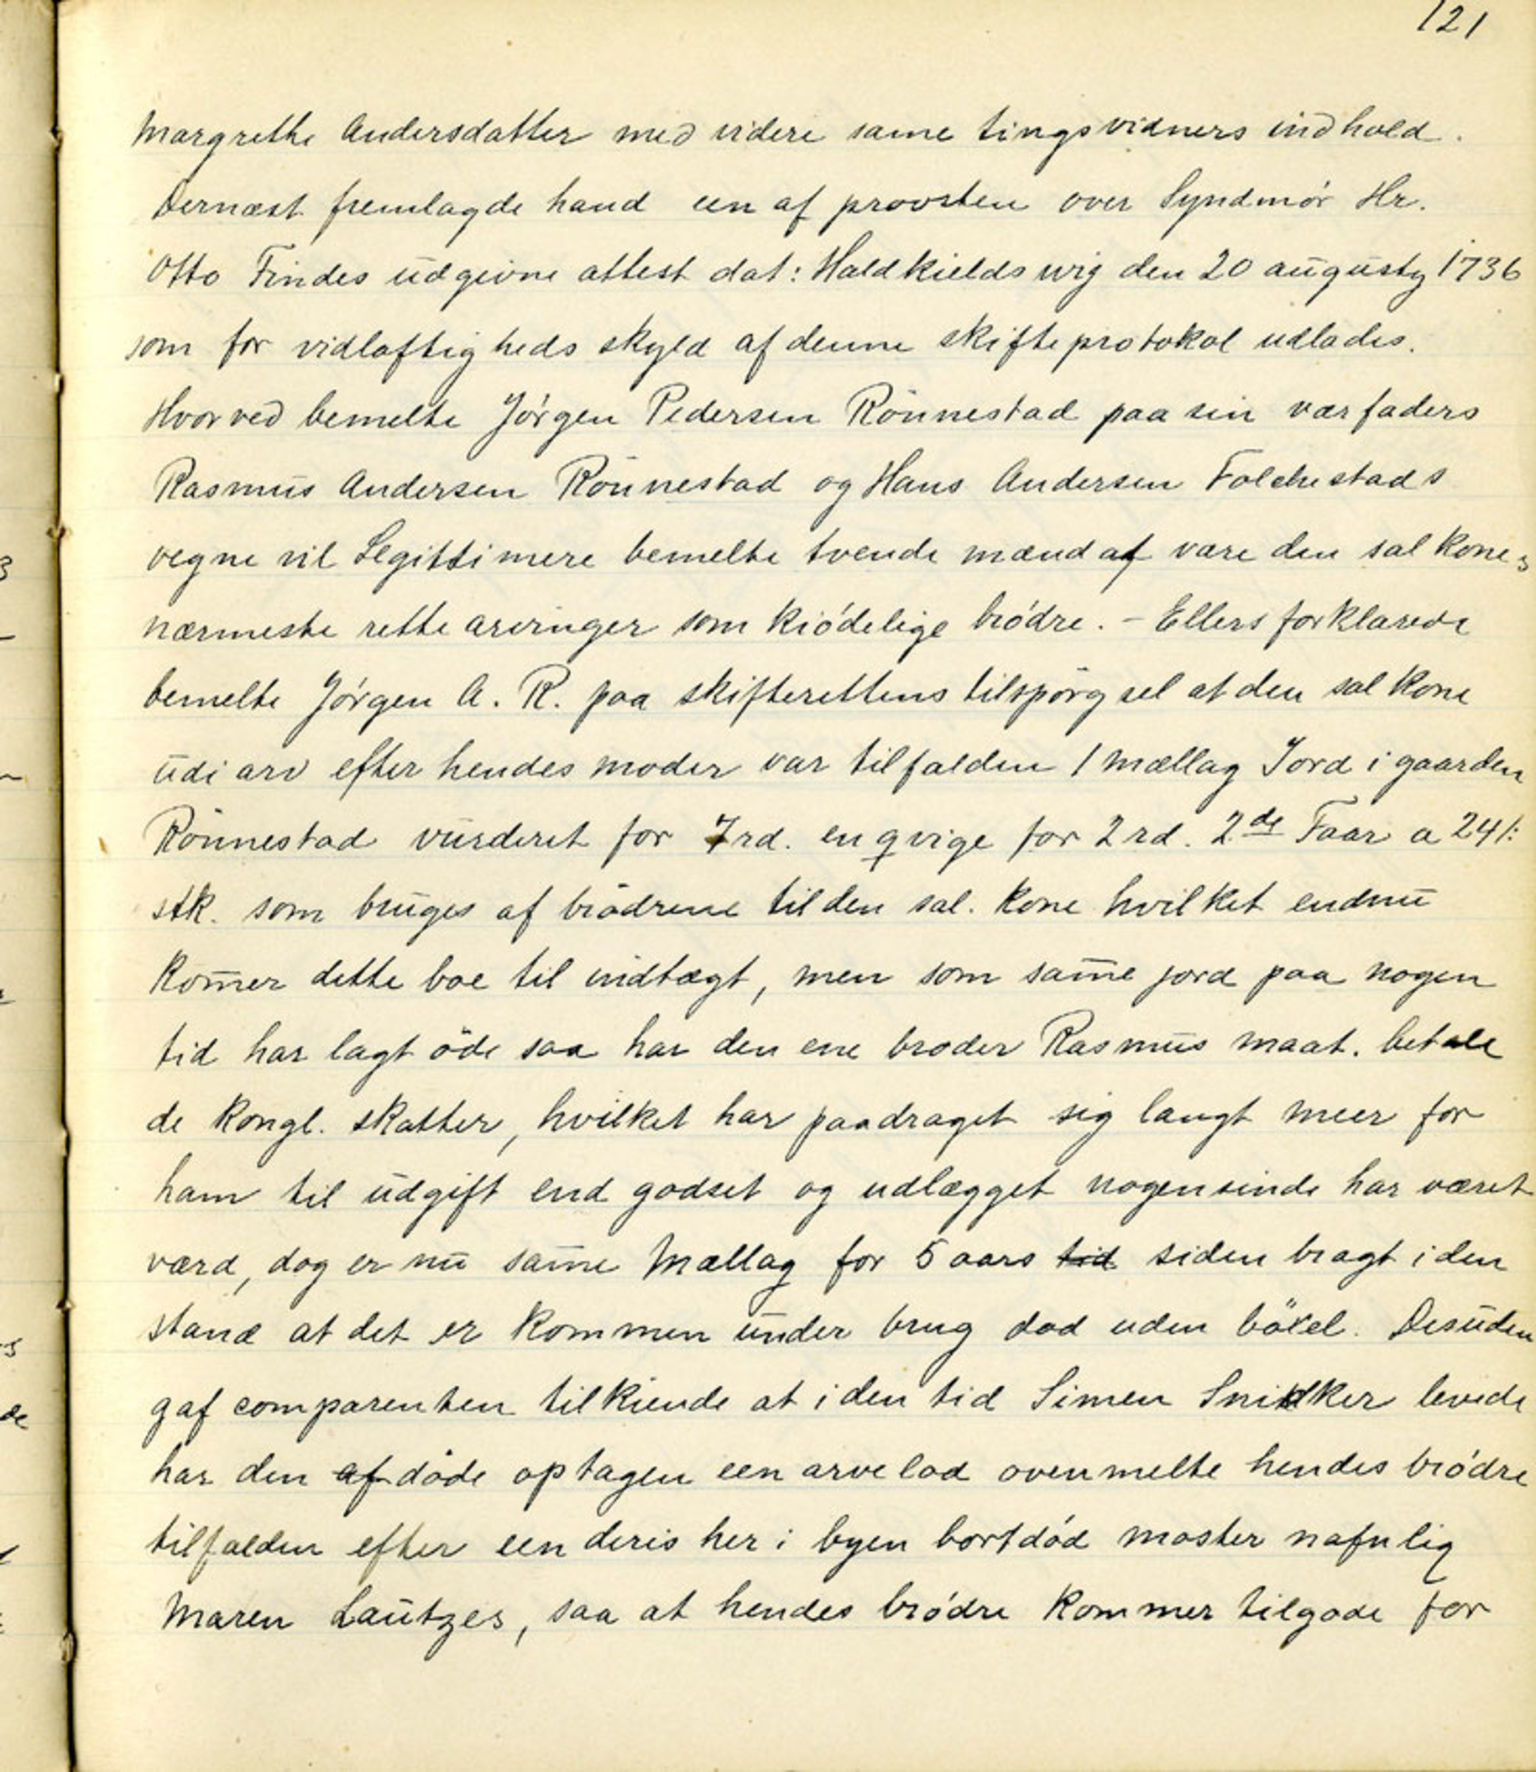 121
Margrethe Andersdatter med videre same tingsvidners indhold.
Dernæst fremlagde hand een af provsten over Syndmör Hr.
Otto Findes udgivne attest dat: Haldkields wig den 20 augusty 1736
som for vidløftigheds skyld af denne skifteprotokol udlades.
Hvorved bemelte Jörgen Pedersen Rönnestad paa sin værfaders
Rasmus Andersen Rönnestad og Hans Andersen Folchestads
vegne vil Legittimere bemelte tvende mænd at være den sal kones
nærmeste rette arvinger som kiödelige brödre. - Ellers forklarede
bemelte Jörgen A. R. paa skifterettens tilspörgsel at den sal kone
udi arv efter hendes moder var tilfalden 1 mællag Jord i gaarden
Rönnestad vurderet for 7rd. en qvige for 2 rd. 2de Faar a 24 s:
stk. som bruges af brödrene til den sal. kone hvilket endnu
komer dette boe til indtægt, men som same jord paa nogen
tid har lagt öde saa har den ene broder Rasmus maat. betale
de kongl. skatter, hvilket har paadraget sig langt meer for
ham til udgift end godset og udlægget nogensinde har været
værd, dog er nu same Mællag for 5 aars tid siden bragt i den
stand at det er kommen under brug dod uden böxel. Desuden
gaf comparenten tilkiende at i den tid Simen Snidker levede
har den af döde optagen een arvelod ovenmelte hendes brödre
tilfalden efter een deris her i byen bortdöd moster nafnlig
Maren Lautzes, saa at hendes brödre kommer tilgode for